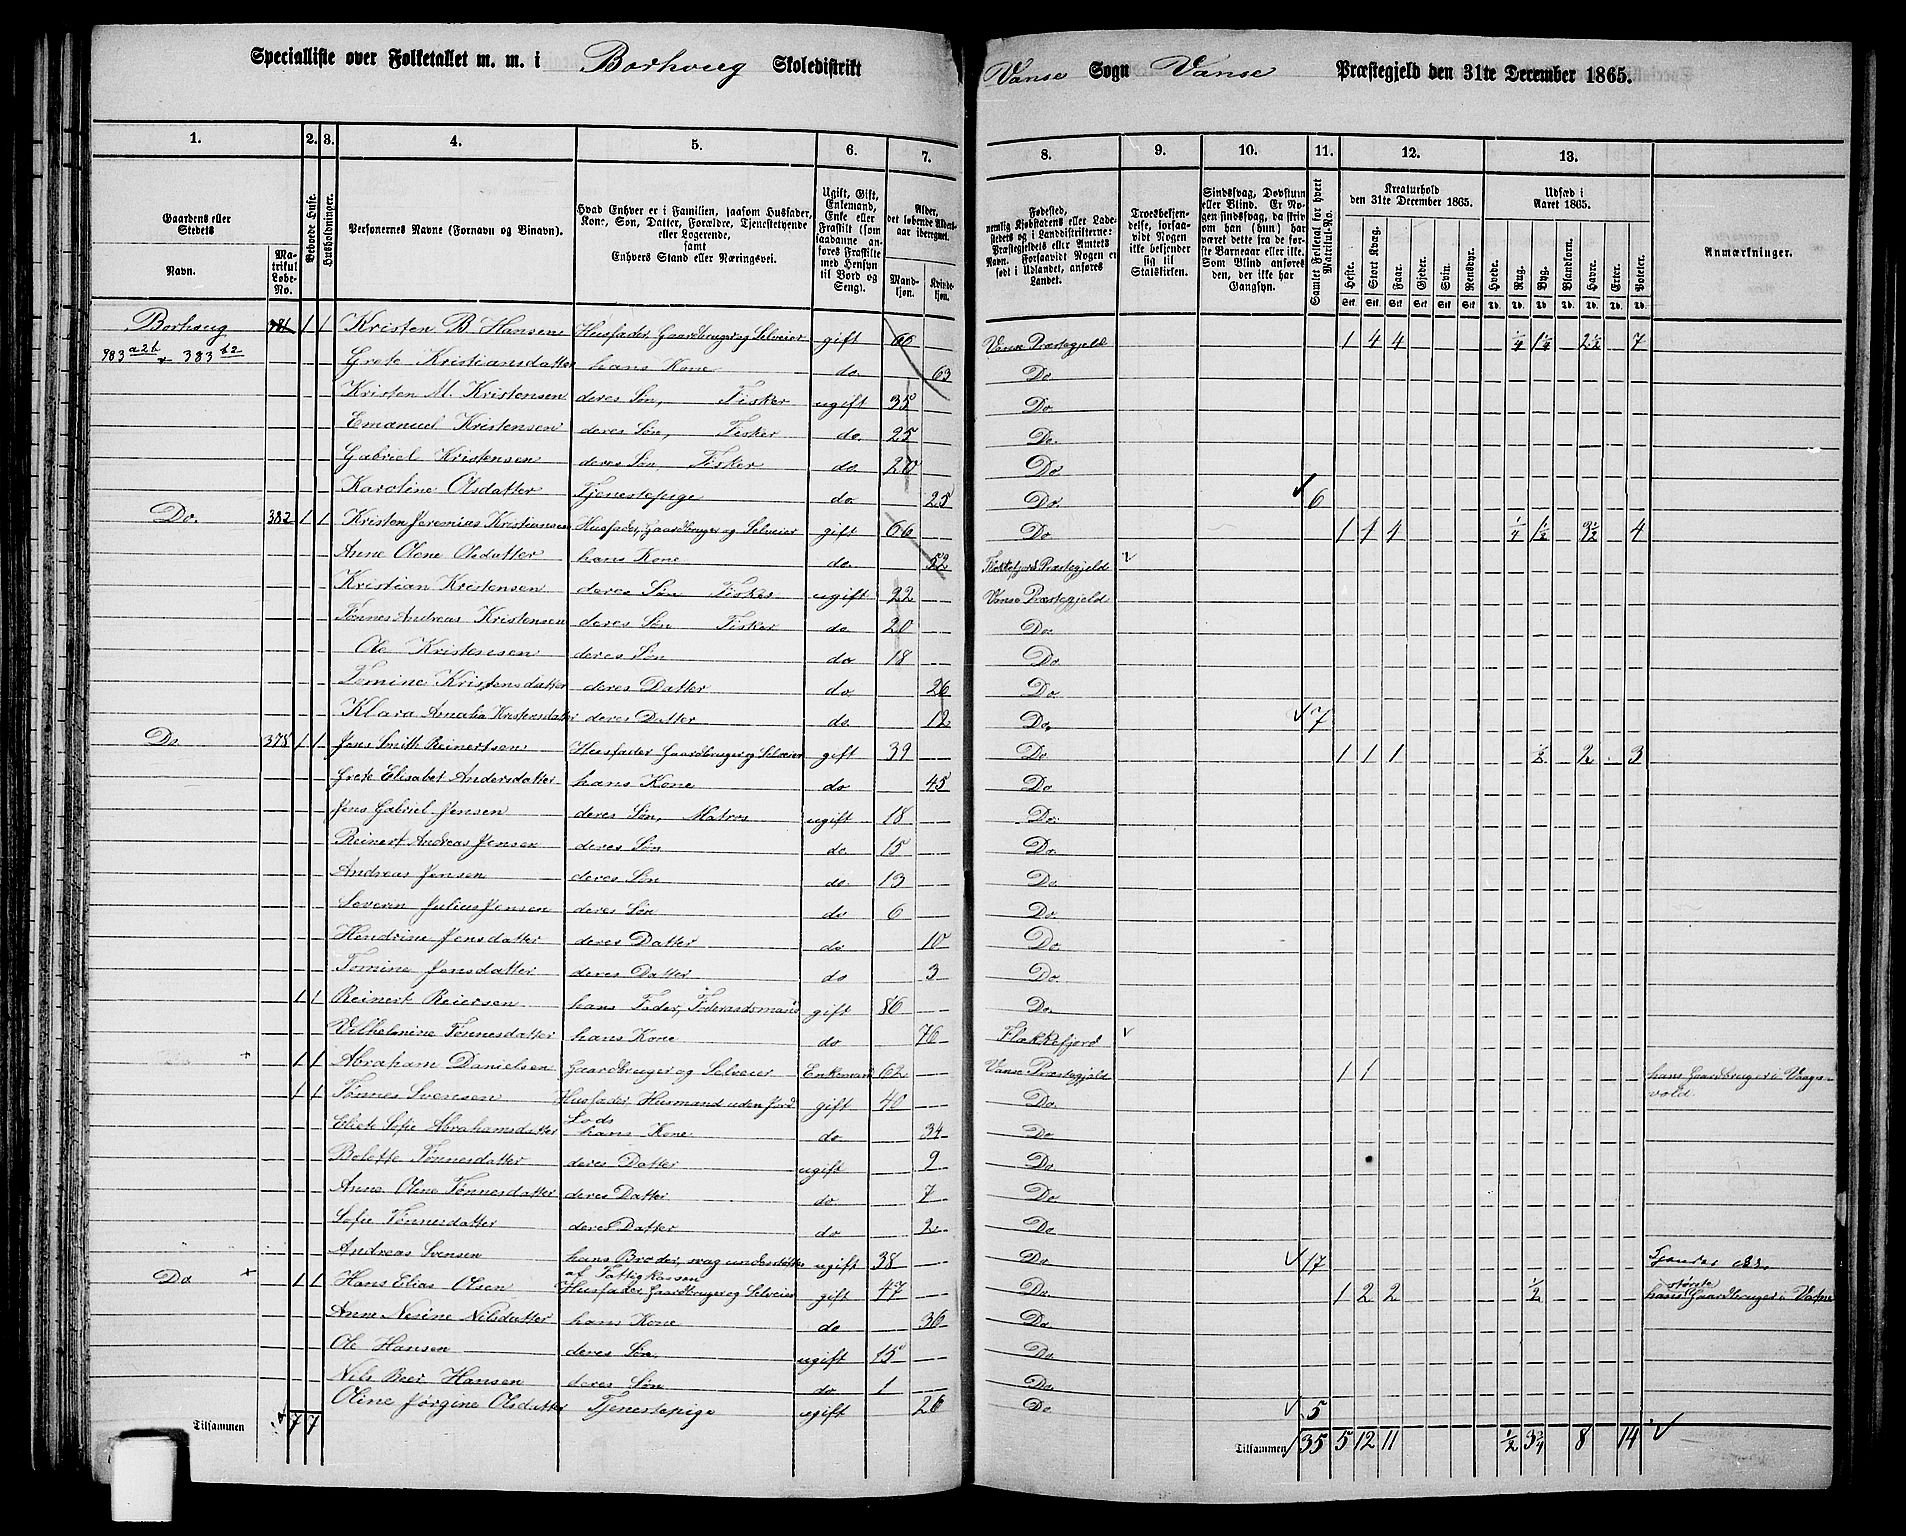 Specialliste over Folketallet m. m. i Borhoug Skoledistrikt Vanse Sogn Vanse Præstegjeld den 31te December 1865.
1. 2. 3. 4. 5. 6. 7. 8. 9. 10. 11. 12. 13.
Gaardens eller Stedets Navn. Matrikul Løbe-No. Beboede Huse. Husholdninger. Personernes Navne (Fornavn og Binavn).
Hvad Enhver er i Familien, saasom Husfader, Kone, Søn, Datter, Forældre, Tjenestetyende eller Logerende, samt Enhvers Stand eller Næringsvei.
Ugift, Gift, Enkemand, Enke eller Fraskilt (som saadanne anføres Fraskilte med Hensyn til Bord og Seng).
Alder, det løbende Aldersaar iberegnet. Mandkjøn. Kvindekjøn.
Fødested, nemlig Kjøbstadens eller Ladestedets og i Landdistrikterne: Præstegjeldets eller Amtets Navn. Forsaavidt Nogen er født i Udlandet, anføres Landet.
Troesbekjendelse, forsaavidt Nogen ikke bekjender sig til Statskirken.
Sindssvag, Døvstum eller Blind. Er Nogen sindssvag, da skrives om han (hun) har været dette fra de første Barneaar eller ikke. Som Blind anføres den, der ikke har Gangsyn.
Samlet Folketal for hvert Matrikul-No.
Kreaturhold den 31te December 1865. Heste. Stort Kvæg. Faar. Gjeder. Svin. Rensdyr.
Udsæd i Aaret 1865. Hvede. Rug. Byg. Blandkorn. Havre. Erter. Poteter.
Anmærkninger.
Borhoug 381 1 1 Kristen B. Hansen Husfader, Gaardbruger og Selveier gift 66 Vanse Præstegjeld 1 4 4 1/4 1 1/4 2 1/2 7
383 a2b & 383 b2 Grete Kristiansdatter hans Kone do. 63 Do
Kristen M. Kristensen deres Søn, Fisker ugift 35 Do
Emanuel Kristensen deres Søn, Fisker do 25 Do.
Gabriel Kristensen deres Søn, Fisker do 20 Do
Karoline Olsdatter Tjenestepige do 25 Do. 6
Do. 382 1 1 Kristen Jeremias Kristiansen Husfader, Gaardbruger og Selveier gift 66 Do 1 1 4 1/4 1/2 3 1/2 4
Anne Olene Olsdatter hans Kone do. 52 Flekkefjords Præstegjeld
Kristian Kristensen deres Søn Fisker ugift 22 Vanse Præstegjeld
Tønnes Andreas Kristensen deres Søn Fisker do 20 Do.
Ole Kristensen deres Søn do 18 Do
Tomine Kristensdatter deres Datter do 26 Do.
Klara Amalia Kristensdatter deres Datter do 12 Do. 7
Do 378 1 1 Jens Smith Reinertsen Husfader Gaardbruger og Selveier gift 39 Do 1 1 1 1/2 2 3
Grete Elisabet Andersdatter hans Kone do 45 Do
Jens Gabriel Jensen deres Søn, Matros ugift 18 Do.
Reinert Andreas Jensen deres Søn do 15 Do.
Andreas Jensen deres Søn do 13 Do
Severin Julius Jensen deres Søn do 6 Do.
Hendrine Jensdatter deres Datter do 10 Do
Tomine Jensdatter deres Datter do 3 Do.
1 1 Reinert Reiersen hans Fader, Føderaadsmand gift 86 Do.
Vilhelmine Tønnesdatter hans Kone do 76 Flekkefjord
1 1 Abraham Danielsen Gaardbruger og Selveier Enkemand 62 Vanse Præstegjeld 1 1 hans Gaardbruger i Vaags-
1 1 Tønnes Svensen Husfader Husmand uden Jord gift 40 Do. vold.
Lods
Eliet Sofie Abrahamsdatter hans Kone do 34 Do
Bolette Tønnesdatter deres Datter ugift 9 Do
Anne Olene Tønnesdatter deres Datter do 7 Do.
Sofie Tønnesdatter deres Datter do 2 Do
Andreas Svensen hans Broder, svag understøttes ugift 38 Do. 17
af Fattigkassen
Do 1 1 Hans Elias Olsen Husfader Gaardbruger og Selveier gift 47 Do. 1 2 2 1/2 største hans Gaardbruger i
Anne Nesine Nilsdatter hans Kone do 36 Do.
Ole Hansen deres Søn ugift 15 Do
Nils Beer Hansen deres Søn do 1 Do.
Oline Jørgine Olsdatter Tjenestepige ugift 26 Do 5
Tilsammen 7 7 Tilsammen 35 5 12 11 1/2 3 3/4 8 14